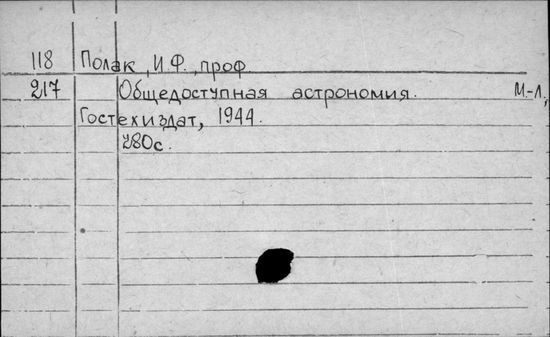 118 Полак, И.Ф., проф
217 Общедоступная астрономия. М.-Л.,
Гостехиздат, 1944.
280с.